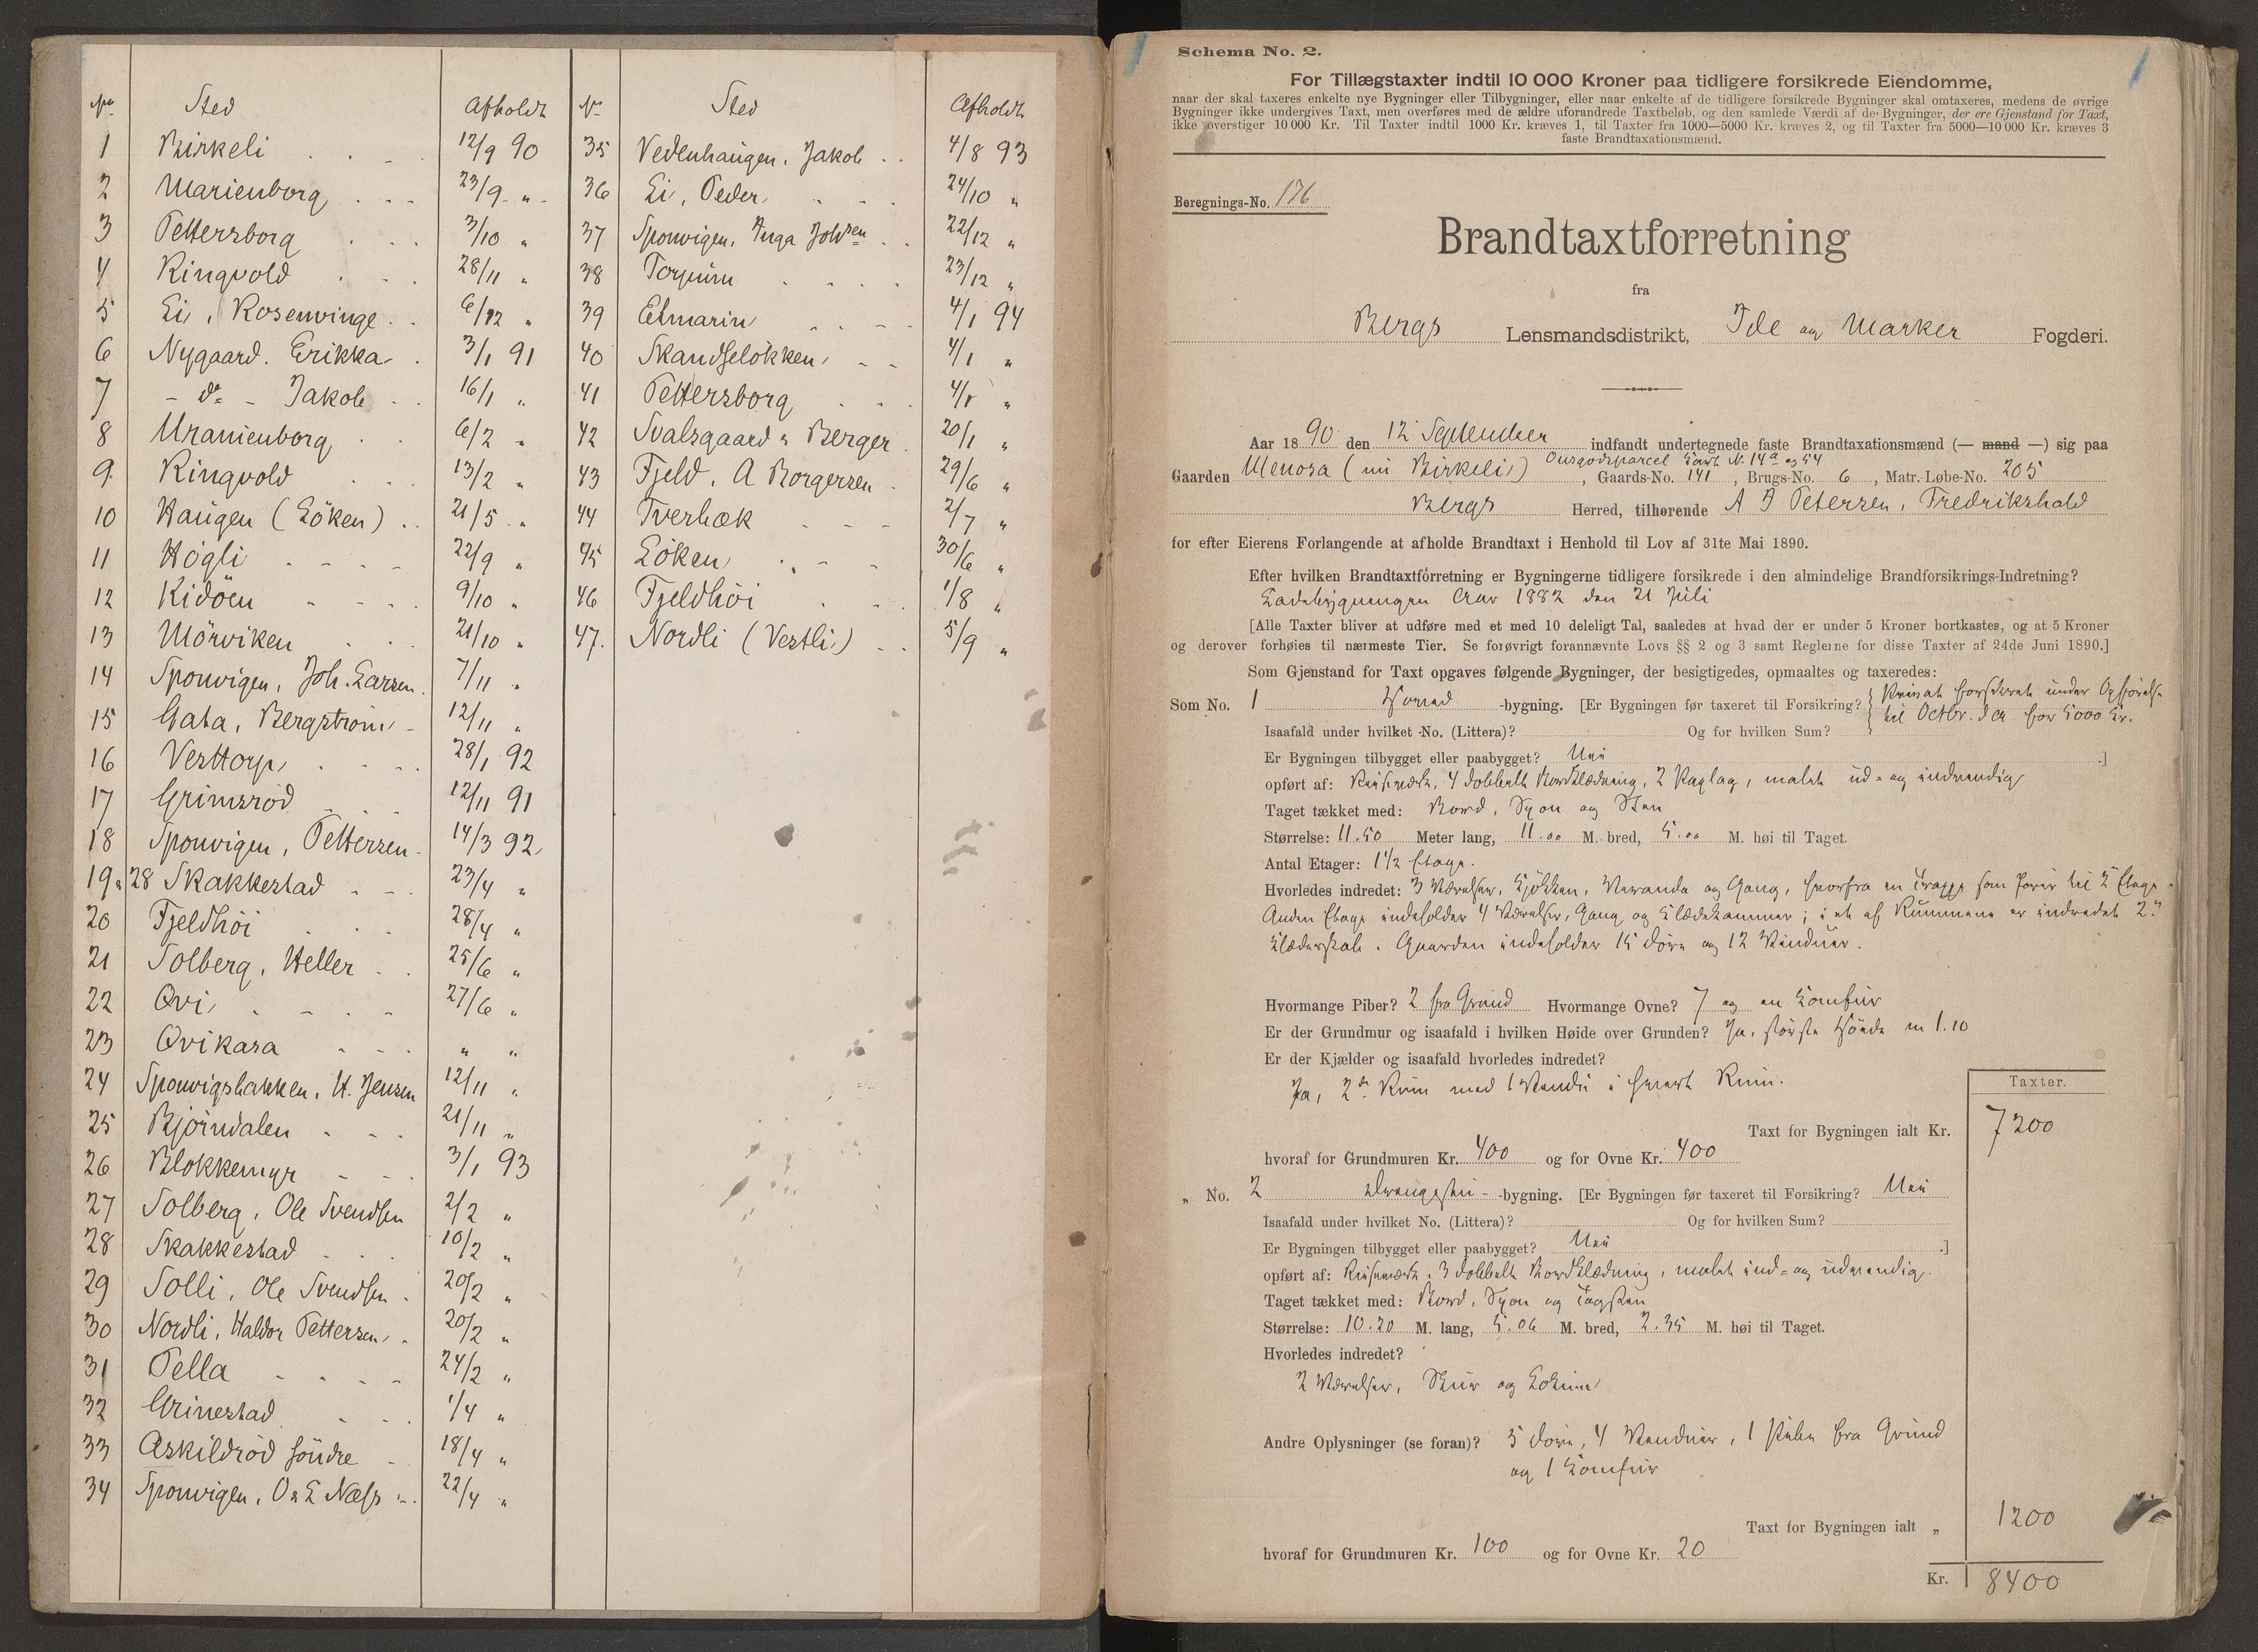 No Sted Afholdt
1 Birkeli 12/9 90
2 Marienborg 23/9 "
3 Pettersborg 3/10 "
4 Ringvold 28/11 "
5 Ei, Rosenvinge 6/12 "
6 Nygaard. Erikka 3/1 91
7 - do - Jakob 16/1 "
8 Uranienborg 6/2 "
9 Ringvold 13/2 "
10 Haugen (Löken) 21/5 "
11 Högli 22/9 "
12 Kidöen 9/10 "
13 Mörviken 21/10 "
14 Sponvigen, Joh. Larsen 7/11 "
15 Gata, Bergström 12/11 "
16 Vesttorp 28/1 92
17 Grimsröd 12/11 91
18 Sponvigen, Pettersen 14/3 92
19 " 28 Skakkestad 23/4 "
20 Fjeldhöi 28/4 "
21 Solberg, Heller 25/6 "
22 Qvi 27/6 "
23 Qvikasa " "
24 Sponvigsbakken, H. Jensen 12/11 "
25 Björndalen 21/11 "
26 Blokkemyr 3/1 93
27 Solberg, Ole Svendsen 2/2 "
28 Skakkestad 10/2 "
29 Solli, Ole Svendsen 20/2 "
30 Nordli, Haldor Pettersen 20/2 "
31 Pella 24/2 "
32 Grinestad 1/4 "
33 Askildröd söndre 18/4 "
34 Sponvigen, O & L Næss 22/4 "
No Sted Afholdt
35 Vedenhaugen, Jakob 4/8 93
36 Ei, Peder 24/10 "
37 Sponvigen, Inga Johsen 22/12 "
38 Torpum 23/12 "
39 Elmarin 4/1 94
40 Skandselökken 4/1 "
41 Pettersborg 4/1 "
42 Svalsgaard " Berger 20/1 "
43 Fjeld, A Borgersen 29/6 "
44 Tverbæk 2/7 "
45 Löken 30/6 "
46 Fjeldhöi 1/8 "
47. Nordli (Vestli) 5/9 "
Schema No. 2.
1
For Tillægstaxter indtil 10 000 Kroner paa tidligere forsikrede Eiendomme,
naar der skal taxeres enkelte nye Bygninger eller Tilbygninger, eller naar enkelte af de tidligere forsikrede Bygninger skal omtaxeres, medens de øvrige
Bygninger ikke undergives Taxt, men overføres med de ældre uforandrede Taxtbeløb, og den samlede Værdi af de Bygninger, der ere Gjenstand for Taxt,
ikke overstiger 10 000 Kr. Til Taxter indtil 1000 Kr. kræves 1, til Taxter fra 1000—5000 Kr. kræves 2, og til Taxter fra 5000—10 000 Kr. kræves 3
faste Brandtaxationsmænd.
Beregnings-No. 176
Brandtaxtforretning
fra
Bergs Lensmandsdistrikt, Ide og Marker Fogderi.
Aar 1890 den 12 September indfandt undertegnede faste Brandtaxationsmænd (— mand —) sig paa
Gaarden (nu Birkeli) , Gaards-No. 141, Brugs-No. 6, Matr. Løbe-No. 205
Bergs Herred, tilhørende A J Petersen, Fredrikshald
for efter Eierens Forlangende at afholde Brandtaxt i Henhold til Lov af 31te Mai 1890.
Efter hvilken Brandtaxtforretning er Bygningerne tidligere forsikrede i den almindelige Brandforsikrings-Indretning?
Ladebygningen Aar 1882 den 21 Juli
[Alle Taxter bliver at udføre med et med 10 deleligt Tal, saaledes at hvad der er under 5 Kroner bortkastes, og at 5 Kroner
og derover forhøies til nærmeste Tier. Se forøvrigt forannævnte Lovs §§ 2 og 3 samt Reglerne for disse Taxter af 24de Juni 1890.]
Som Gjenstand for Taxt opgaves følgende Bygninger, der besigtigedes, opmaaltes og taxeredes:
Som No. 1 Hoved -bygning. [Er Bygningen før taxeret til Forsikring? Privat forsikret under Opførelse
til Octbr. d.a. for 5000 Kr.
Isaafald under hvilket No. (Littera)? Og for hvilken Sum?
Er Bygningen tilbygget eller paabygget? Nei .]
opført af: Reisværk, 4 dobbelt Bordklædning, 2 Paplag, malet ud- og indvendig
Taget tækket med: Bord, Spon og Sten
Størrelse: 11.50 Meter lang, 11.00 M. bred, 5.00 M. høi til Taget.
Antal Etager: 1 1/2 Etage.
Hvorledes indredet: 3 Værelser, Kjökken, Veranda og Gang, hvorfra en Trappe som fører til 2 Etage.
Anden Etage indeholder 4 Værelser, Gang og Klædekammer; i et af Rummene er indredet 2de
Klædeskabe. Gaarden indeholder 15 döre og 12 Vinduer.
Hvormange Piber? 2 fra Grund Hvormange Ovne? 7 og en Komfur
Er der Grundmur og isaafald i hvilken Høide over Grunden? Ja, største Höide m 1.10
Er der Kjælder og isaafald hvorledes indredet?
Ja, 2de Rum med 1 Vindu i hvert Rum.
Taxter.
Taxt for Bygningen ialt Kr. 7200
hvoraf for Grundmuren Kr. 400 og for Ovne Kr. 400
" No. 2 Drengestu- -bygning. [Er Bygningen før taxeret til Forsikring? Nei
Isaafald under hvilket No. (Littera)? Og for hvilken Sum?
Er Bygningen tilbygget eller paabygget? Nei .]
opført af: Reisværk, 3 dobbelt Bordklædning, malet ind- og udvendig.
Taget tækket med: Bord, Spon og Tagsten
Størrelse: 10.20 M. lang, 5.06 M. bred, 2.35 M. høi til Taget.
Hvorledes indredet?
2 Værelser, Skur og Lokum
Andre Oplysninger (se foran)? 5 döre, 4 Vinduer, 1 Pibe fra Grund
og 1 Komfur
Taxt for Bygningen ialt " 1200
hvoraf for Grundmuren Kr. 100 og for Ovne Kr. 20
Kr. 8400